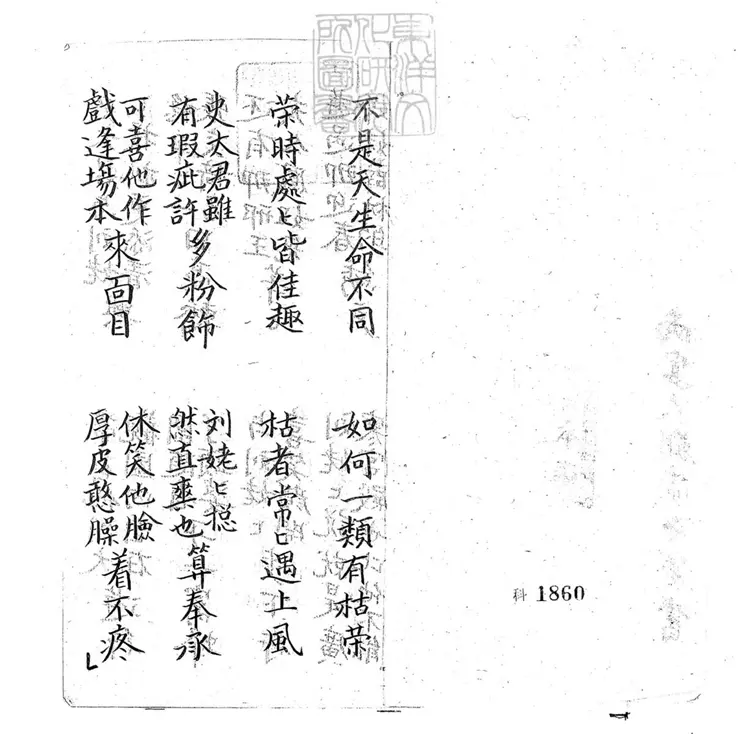 東洋文
化研究
所圖書
科 1860
不是天生命不同 如何一類有枯荣
荣時處〻皆佳趣 枯者常〻遇上風
史太君雖有瑕疵許多粉飾 刘姥〻搃然直爽也算奉承
可喜他作戲逢場本來面目 休笑他臉厚皮憨臊着不疼